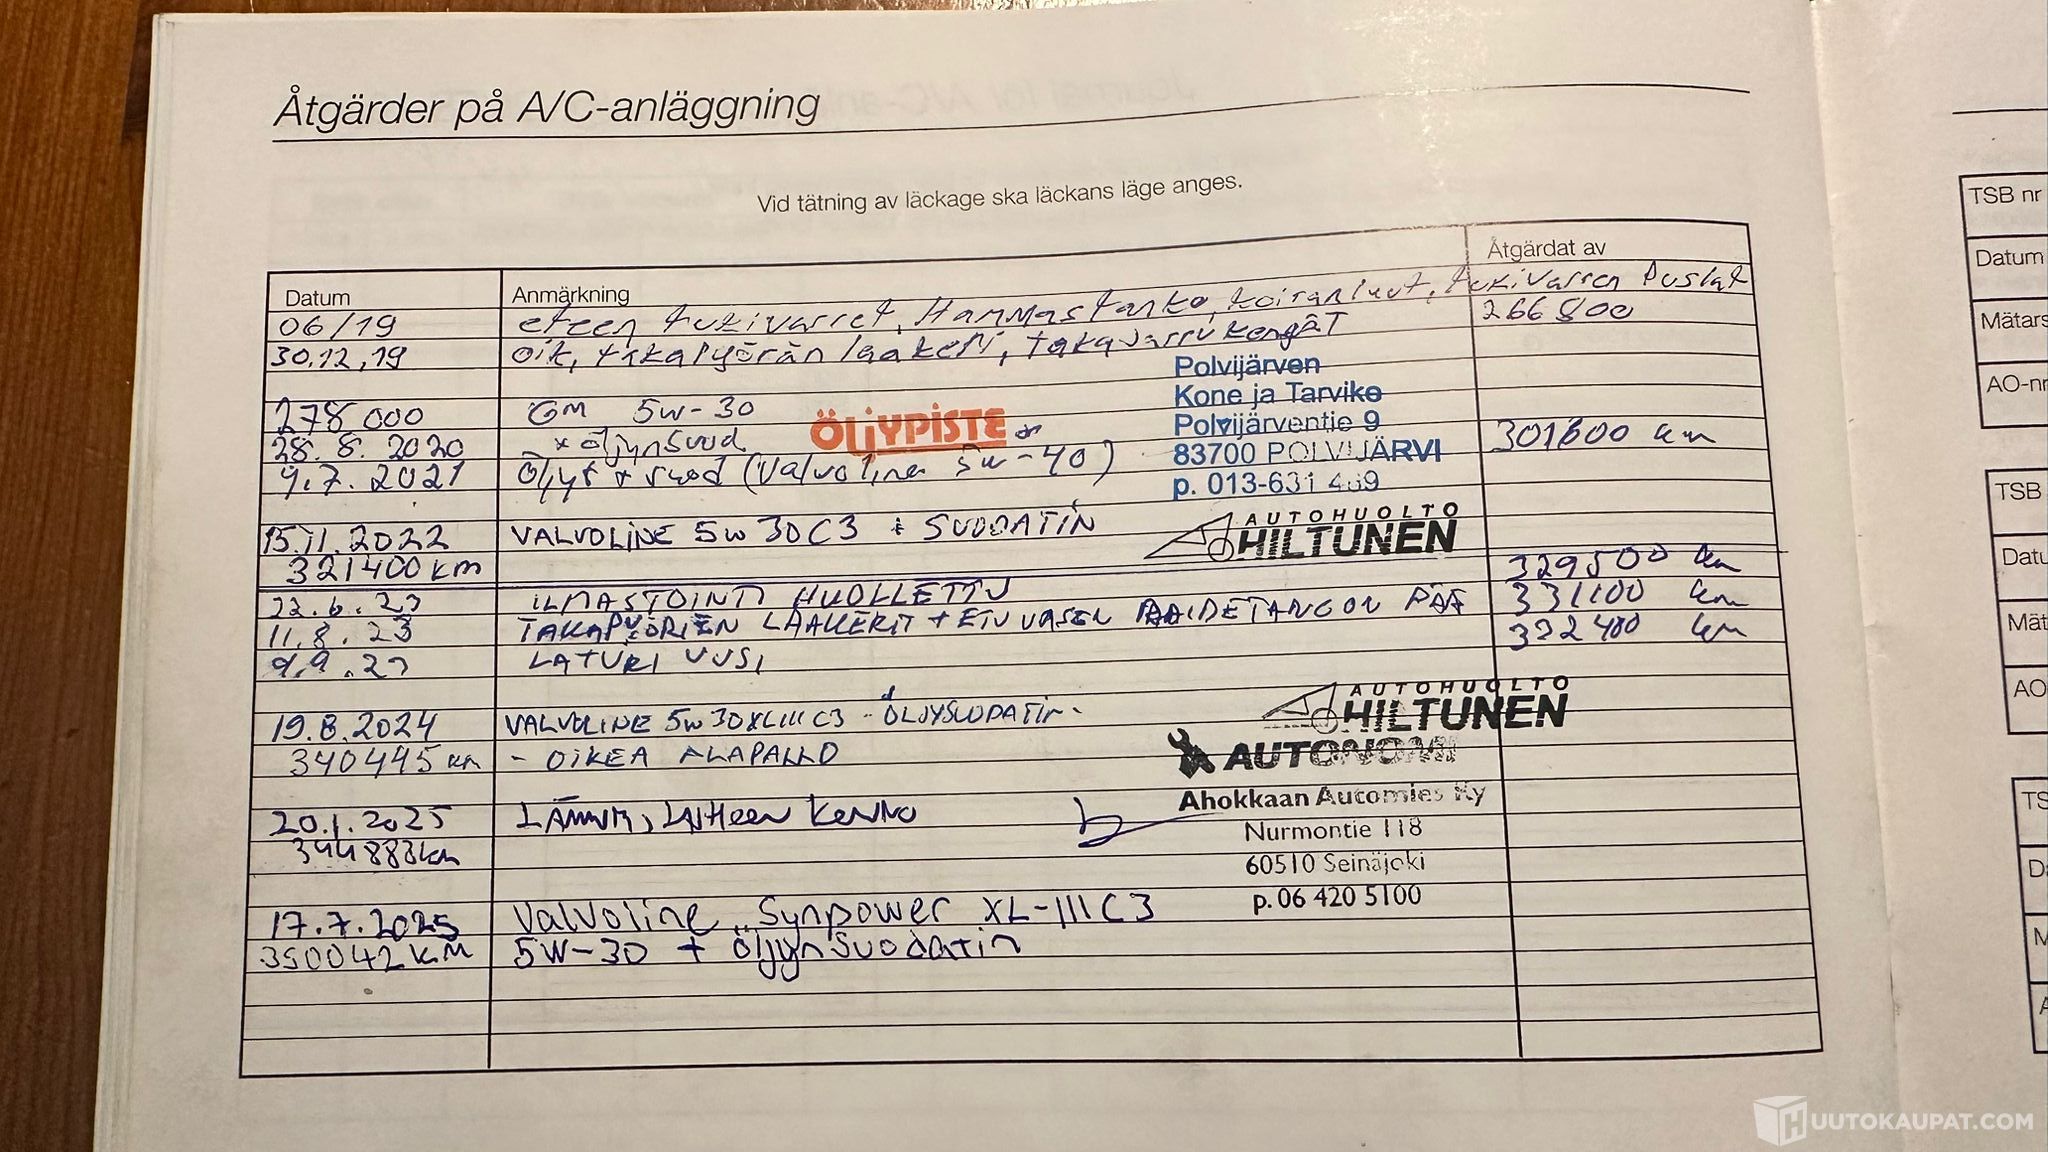 Åtgärder på A/C-anläggning
Vid tätning av läckage ska läckans läge anges.
Datum Anmärkning Åtgärdat av
06/19 eteen tukivarret, Hammastanko, koiranluut, tukivarren Puslat
30.12.19 oik, takapyörän laakeri, takajarrukengät 266800
Polvijärven
Kone ja Tarvike
Polvijärventie 9
83700 POLVIJÄRVI
p. 013-631 469
278 000 GM 5W-30
28.8.2020 * öljynsuod. ÖLJYPISTE
9.7.2021 Öljyt + suod (Valvoline 5W-40) 301600 km
15.11.2022 VALVOLINE 5W30C3 + SUODATIN AUTOHUOLTO
HILTUNEN
321400 km
22.6.23 ILMASTOINTI HUOLLETTU 329500 km
11.8.23 TAKAPYÖRIEN LAAKERIT + ETU VASEN RAIDETANGON PÄÄ 331100 km
9.9.23 LATURI UUSI 332400 km
19.8.2024 VALVOLINE 5W30XLIIIC3 - ÖLJYSUODATIN- AUTOHUOLTO
HILTUNEN
340445 km - OIKEA ALAPALLO
AUTONOMI
Ahokkaan Automies Ky
Nurmontie 118
60510 Seinäjoki
p. 06 420 5100
20.1.2025 Lämm, Laitteen Kenno
344 888km
17.7.2025 Valvoline Synpower XL-III C3
350042 KM 5W-30 + Öljynsuodatin
TSB nr
Datum
Mätars
AO-nr
TSB
Datu
Mät
AO
TS
HUUTOKAUPAT.COM